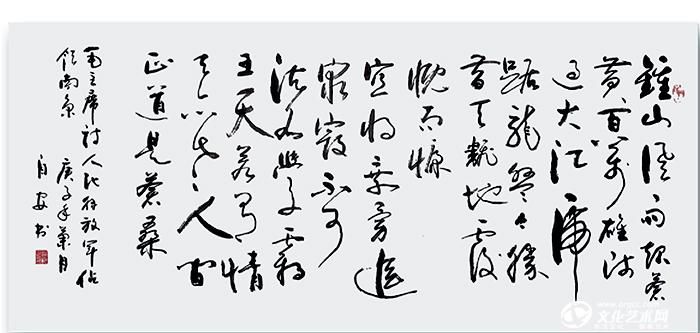 鍾山風雨起蒼
黃百萬雄師
過大江虎
踞龍盤今勝
昔天飜地覆
慨而慷
宜將剩勇追
窮寇不可
沽名學霸
王天若有情
天亦老人間
正道是蒼桑
毛主席詩人民解放軍佔
領南京 庚子年菊月
自安书
文化艺术网
www.orgcc.com